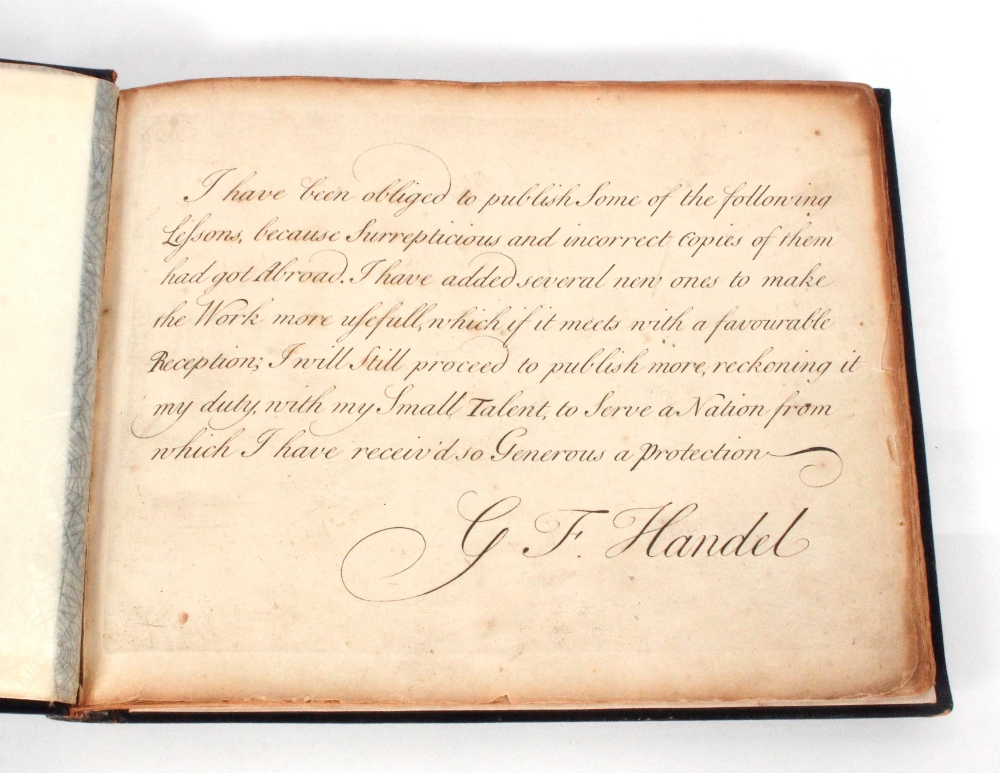 I have been obliged to publish Some of the following
Leſsons, because Surrepticious and incorrect copies of them
had got Abroad. I have added several new ones to make
the Work more uſefull, which if it meets with a favourable
Reception; I will Still proceed to publish more, reckoning it
my duty, with my Small Talent, to Serve a Nation from
which I have receiv'd so Generous a Protection
G F. Handel